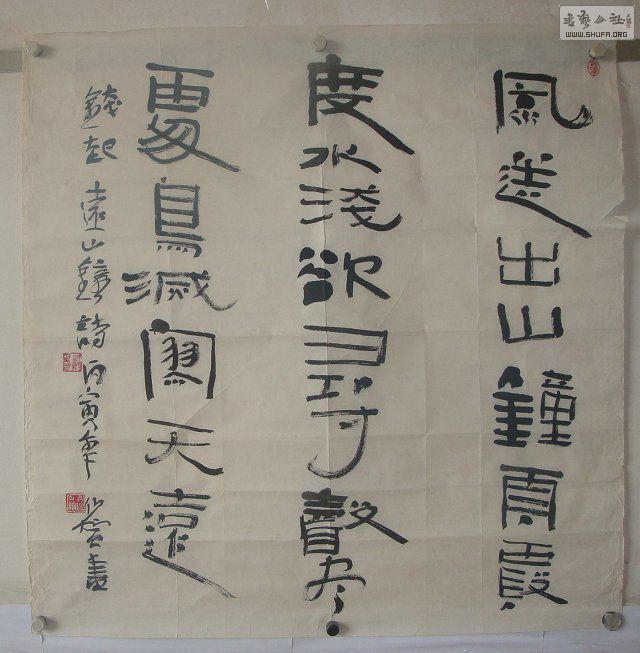 書藝公社
WWW.SHUFA.ORG
風送出山鐘雲霞
度水淺欲尋聲盡
處鳥滅寥天遠
錢起遠山鐘詩丙寅年書